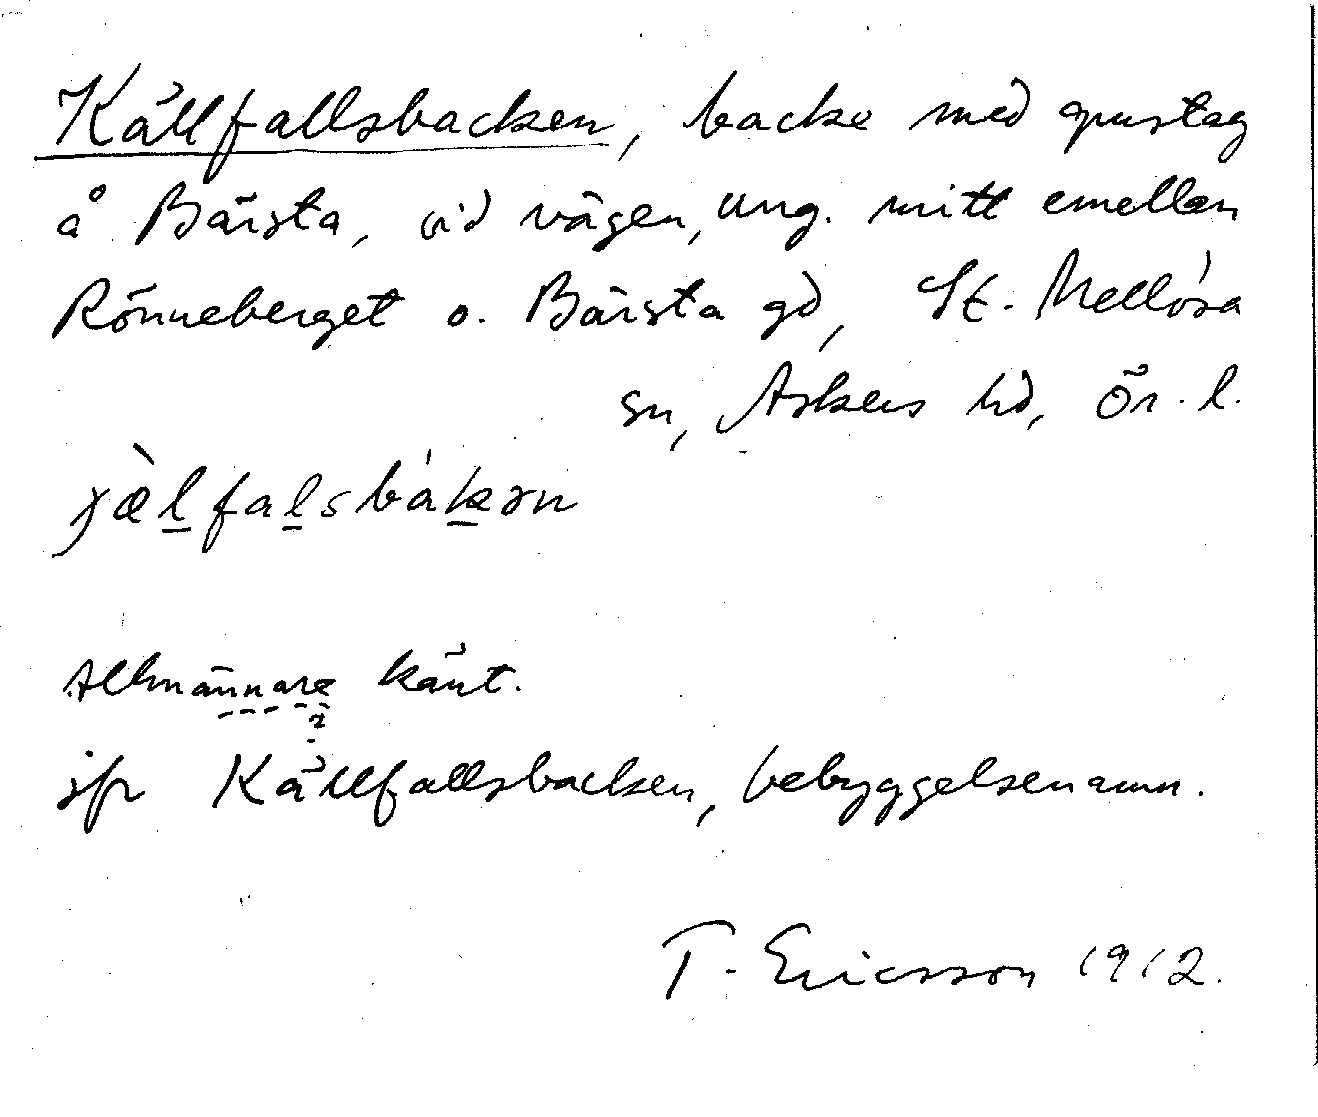 Källfallsbacken, backe med grustag
å Bärsta, vid vägen, ung. mitt emellan
Rönneberget o. Bärsta gd, St. Mellösa
sn, Askers hd, Ör. l.
jæ̀lfalsbákən
Allmännare känt.
jfr Källfallsbacken, bebyggelsenamn.
T. Ericsson 1912.